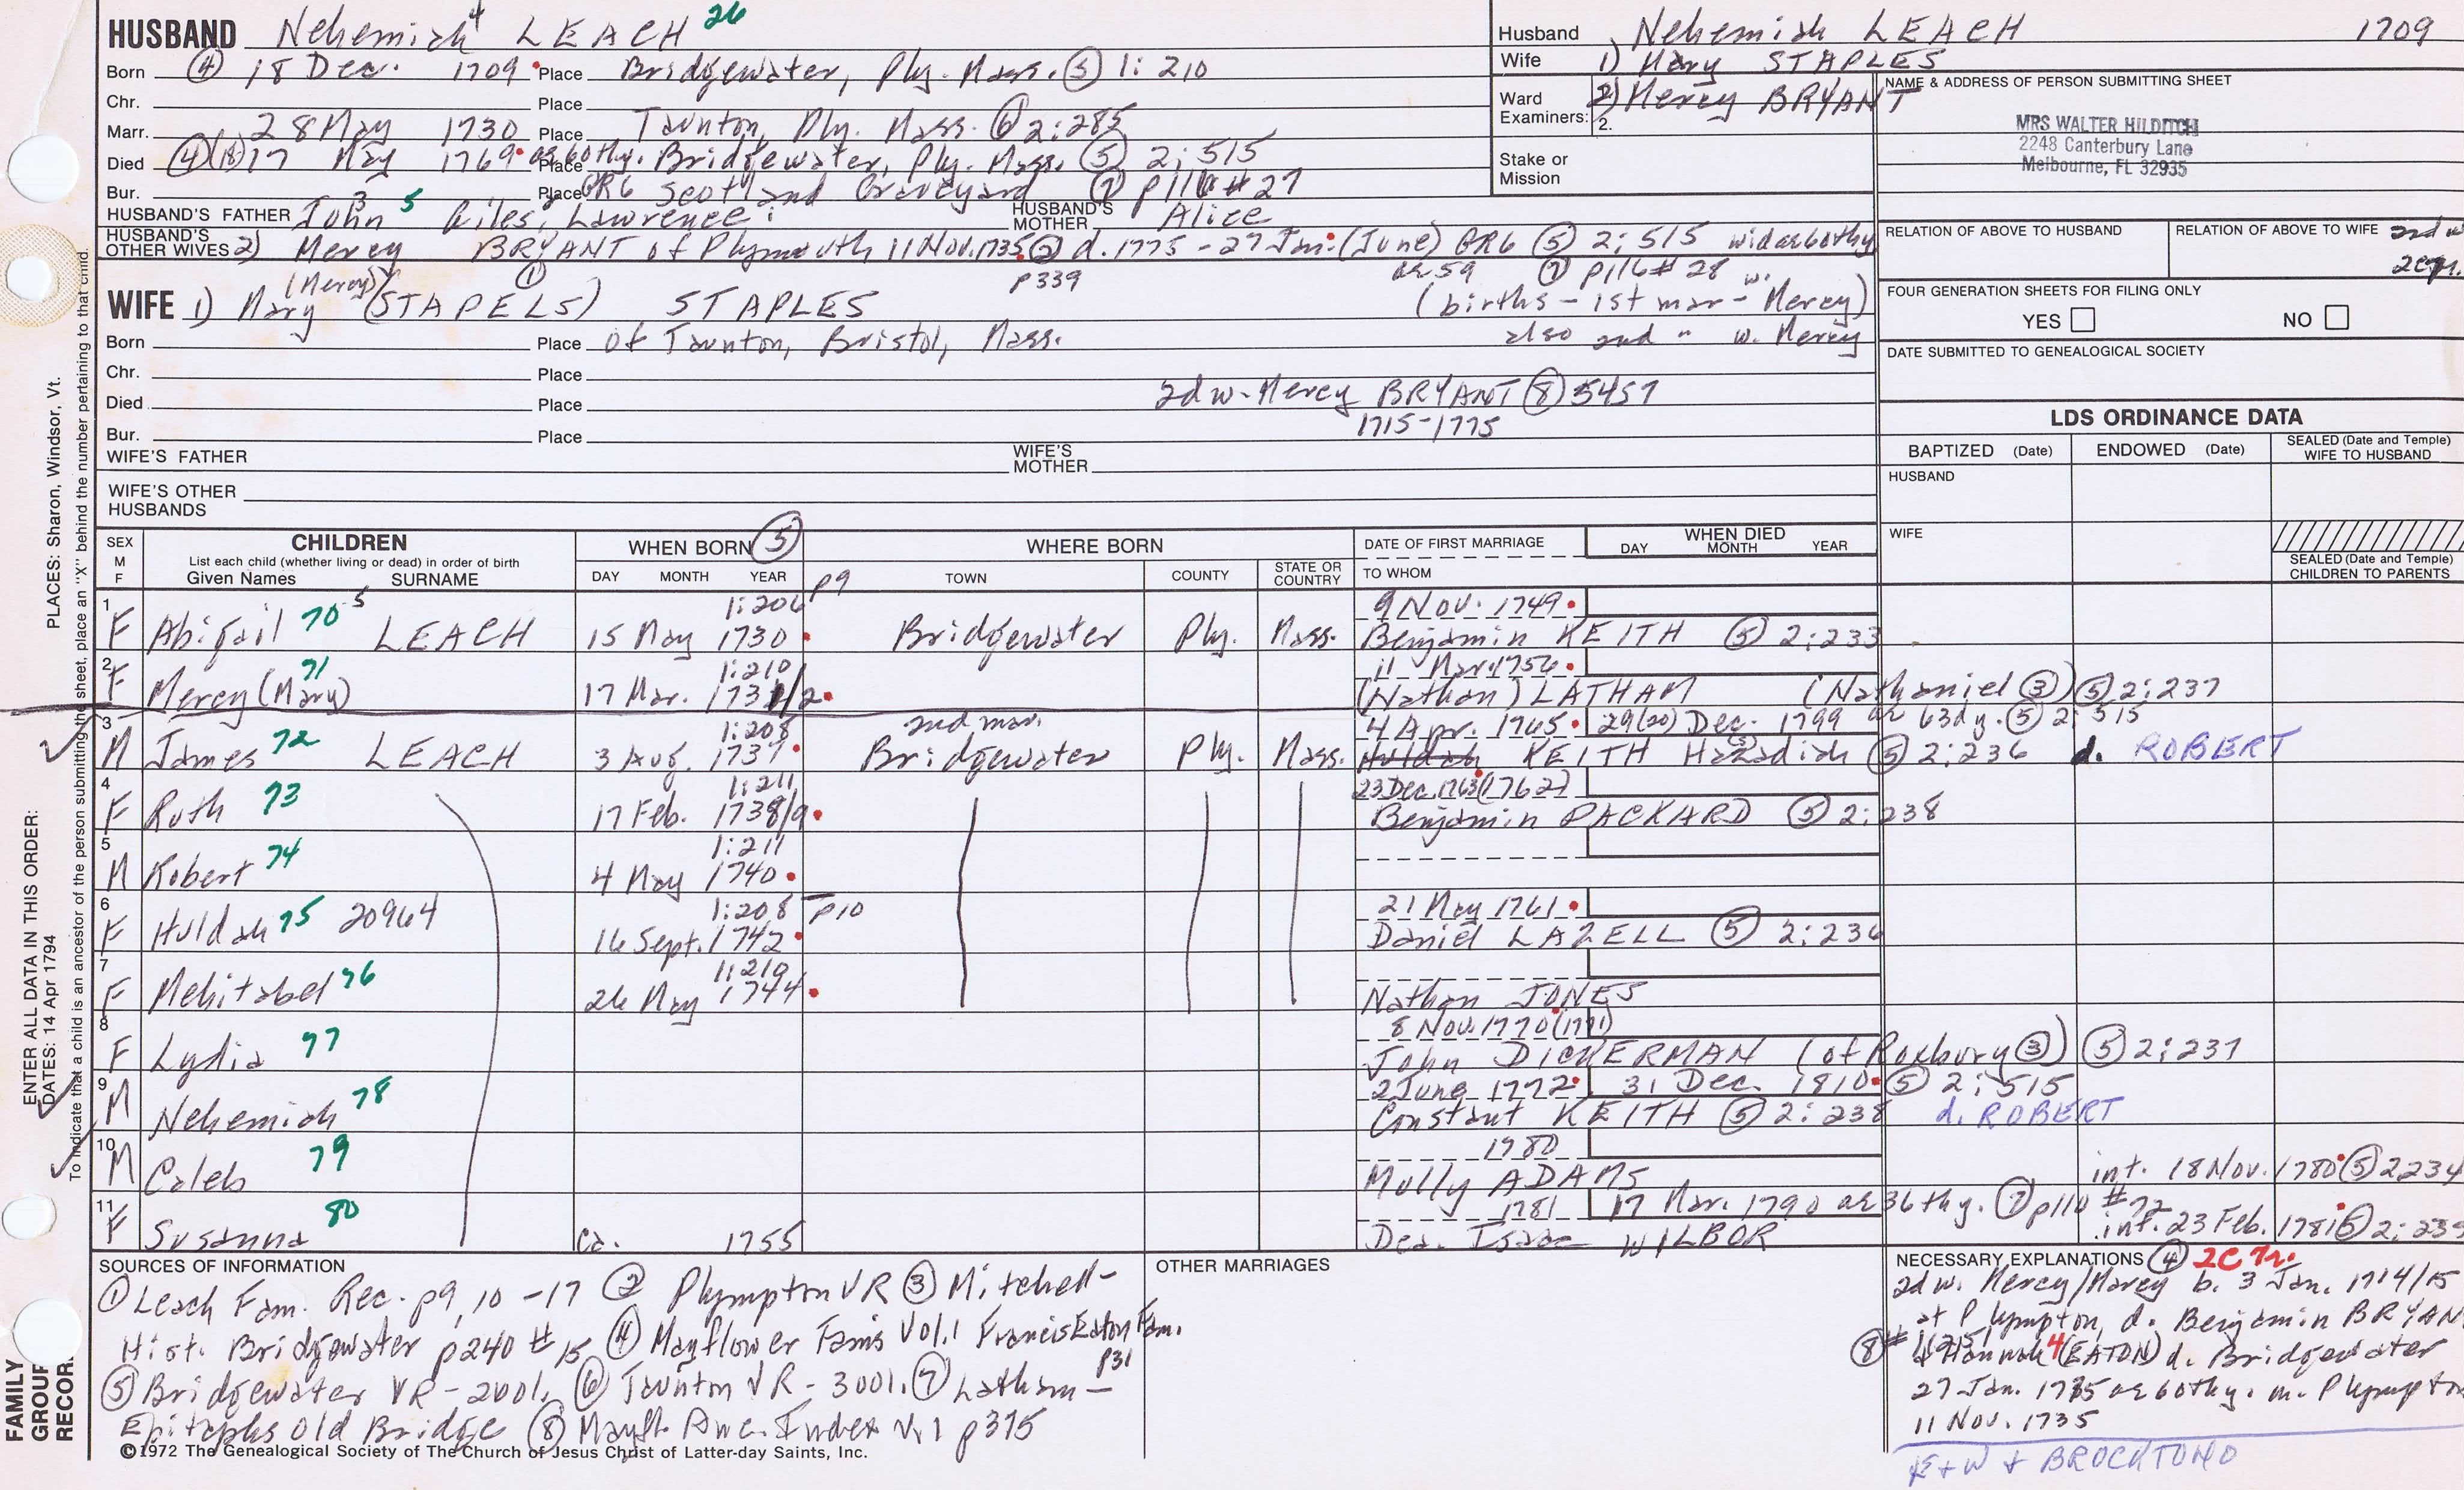 HUSBAND Nehemiah 4 LEACH 26
Born (4) 18 Dec. 1709 Place Bridgewater, Ply. Mass. (5) 1:210
Chr. Place
Marr. 28 May 1730 Place Taunton, Ply. Mass. (6) 2:285
Died (4)(18) 17 May 1769 ae 60thy. Place Bridgewater, Ply. Mass. (5) 2:515
Bur. Place GR6 Scotland Graveyard (7) p116 # 27
HUSBAND'S FATHER John 3 5 Giles, 2 Lawrence 1 HUSBAND'S MOTHER Alice
HUSBAND'S OTHER WIVES 2) Mercy BRYANT of Plymouth 11 Nov. 1735 (2) d. 1775 - 27 Jan: (June) GR6 (5) 2:515 wid ae 60thy
(Mercy) (1) p339 ae 59 (7) p116 # 28 w.
WIFE 1) Mary (STAPELS) STAPLES (births - 1st mar - Mercy)
also 2nd " w. Mercy
Born Place of Taunton, Bristol, Mass.
Chr. Place
2d w - Mercy BRYANT (8) 5457
Died Place
1715-1775
Bur. Place
WIFE'S FATHER WIFE'S MOTHER
WIFE'S OTHER HUSBANDS
Husband Nehemiah LEACH 1709
Wife 1) Mary STAPLES
Ward Examiners: 2) Mercy BRYANT
2.
Stake or Mission
NAME & ADDRESS OF PERSON SUBMITTING SHEET
MRS WALTER HILDITCH
2248 Canterbury Lane
Melbourne, FL 32935
RELATION OF ABOVE TO HUSBAND RELATION OF ABOVE TO WIFE 2nd w
FOUR GENERATION SHEETS FOR FILING ONLY
YES NO
DATE SUBMITTED TO GENEALOGICAL SOCIETY
LDS ORDINANCE DATA
BAPTIZED (Date) ENDOWED (Date) SEALED (Date and Temple) WIFE TO HUSBAND
HUSBAND
WIFE
SEALED (Date and Temple) CHILDREN TO PARENTS
SEX M F
CHILDREN
List each child (whether living or dead) in order of birth
Given Names SURNAME
WHEN BORN (5)
DAY MONTH YEAR p9
WHERE BORN
TOWN COUNTY STATE OR COUNTRY
DATE OF FIRST MARRIAGE
TO WHOM
WHEN DIED
DAY MONTH YEAR
1 1:206 9 Nov. 1749
F Abigail 70 5 LEACH 15 May 1730 Bridgewater Ply. Mass. Benjamin KEITH (5) 2:233
2 1:210 11 Mar 1756
F Mercy (Mary) 71 17 Mar. 1731/2 (Nathan) LATHAM (Nathaniel (3)) (5) 2:237
3 1:208 2nd mar. 4 Apr. 1765 29(20) Dec. 1799 ae 63d y. (5) 2:515
M James 72 LEACH 3 Aug. 1737 Bridgewater Ply. Mass. Huldah KEITH Hazadiah (5) 2:236 d. ROBERT
4 1:211 23 Dec. 1763 (1762)
F Ruth 73 17 Feb. 1738/9 Benjamin PACKARD (5) 2:238
5 1:211
M Robert 74 4 May 1740
6 1:208 p10 21 May 1761
F Huldah 75 20964 16 Sept. 1742 Daniel LAZELL (5) 2:236
7 1:210
F Mehitabel 76 26 May 1744 Nathan JONES
8 8 Nov. 1770 (1771)
F Lydia 77 John DICKERMAN (of Roxbury (3)) (5) 2:237
9 2 June 1772 31 Dec. 1810 (5) 2:515
M Nehemiah 78 Constant KEITH (5) 2:238 d. ROBERT
10 1780
M Caleb 79 Molly ADAMS int. 18 Nov. 1780 (5) 2234
11 1781 17 Mar. 1790 ae 36thy. (7) p110 #72
F Susanna 80 ca. 1755 Dea. Isaac WILBOR int. 23 Feb. 1781 (5) 2:239
SOURCES OF INFORMATION
(1) Leach Fam. Rec. p9, 10 - 17 (2) Plympton VR (3) Mitchell -
Hist. Bridgewater p240 # 15 (4) Mayflower Fams Vol. 1 Francis Eaton Fam. p31
(5) Bridgewater VR - 2 vol. (6) Taunton VR - 3 vol. (7) Latham -
Epitaphs Old Bridge (8) Mayfl. Anc. Index v. 1 p375
©1972 The Genealogical Society of The Church of Jesus Christ of Latter-day Saints, Inc.
OTHER MARRIAGES
NECESSARY EXPLANATIONS (4)
2d w. Mercy/Marcy b. 3 Jan. 1714/15
at Plympton, d. Benjamin BRYAN
(8) & Hannah 4 (EATON) d. Bridgewater
27 Jan. 1775 ae 60thy. m. Plympton
11 Nov. 1735
E + W + BROCKTON
ENTER ALL DATA IN THIS ORDER:
DATES: 14 Apr 1794
PLACES: Sharon, Windsor, Vt.
To indicate that a child is an ancestor of the person submitting the sheet, place an "X" behind the number pertaining to that child.
FAMILY
GROUP
RECOR